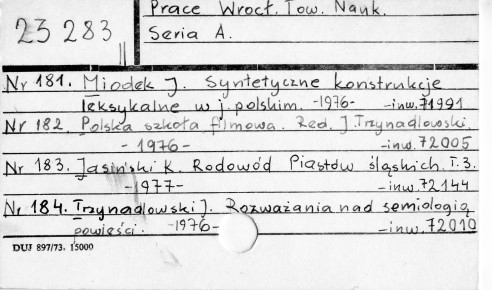 Prace Wrocł. Tow. Nauk.
23 283 || Seria A.
Nr 181. Miodek J. Syntetyczne konstrukcje
leksykalne w j. polskim. -1976- -inw. 71991
Nr 182. Polska szkoła filmowa. Red. J. Trzynadlowski.
- 1976 - -inw. 72005
Nr 183. Jasiński K. Rodowód Piastów śląskich. T. 3.
-1977- -inw. 72144
Nr 184. Trzynadlowski J. Rozważania nad semiologią
powieści. -1976- -inw. 72010
DUJ 897/73. 15000